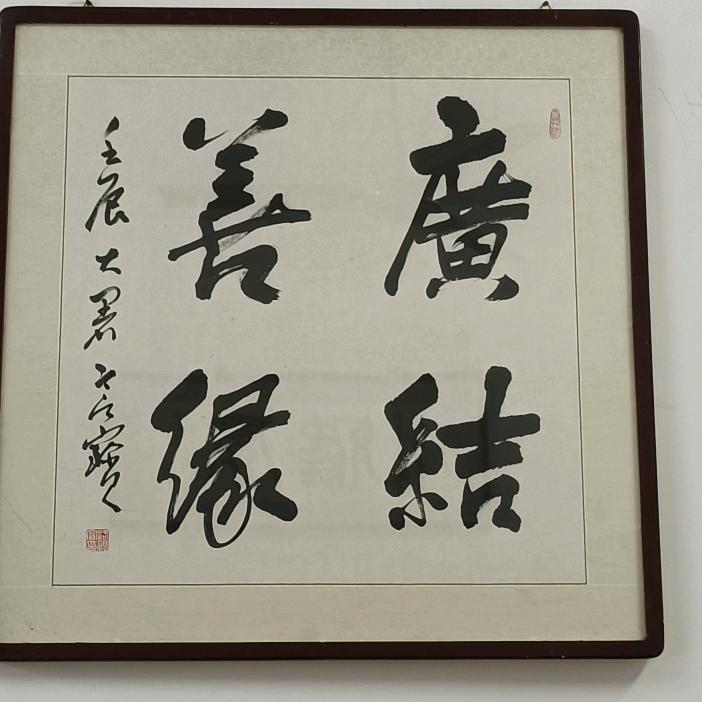 廣結
善緣
壬辰大暑